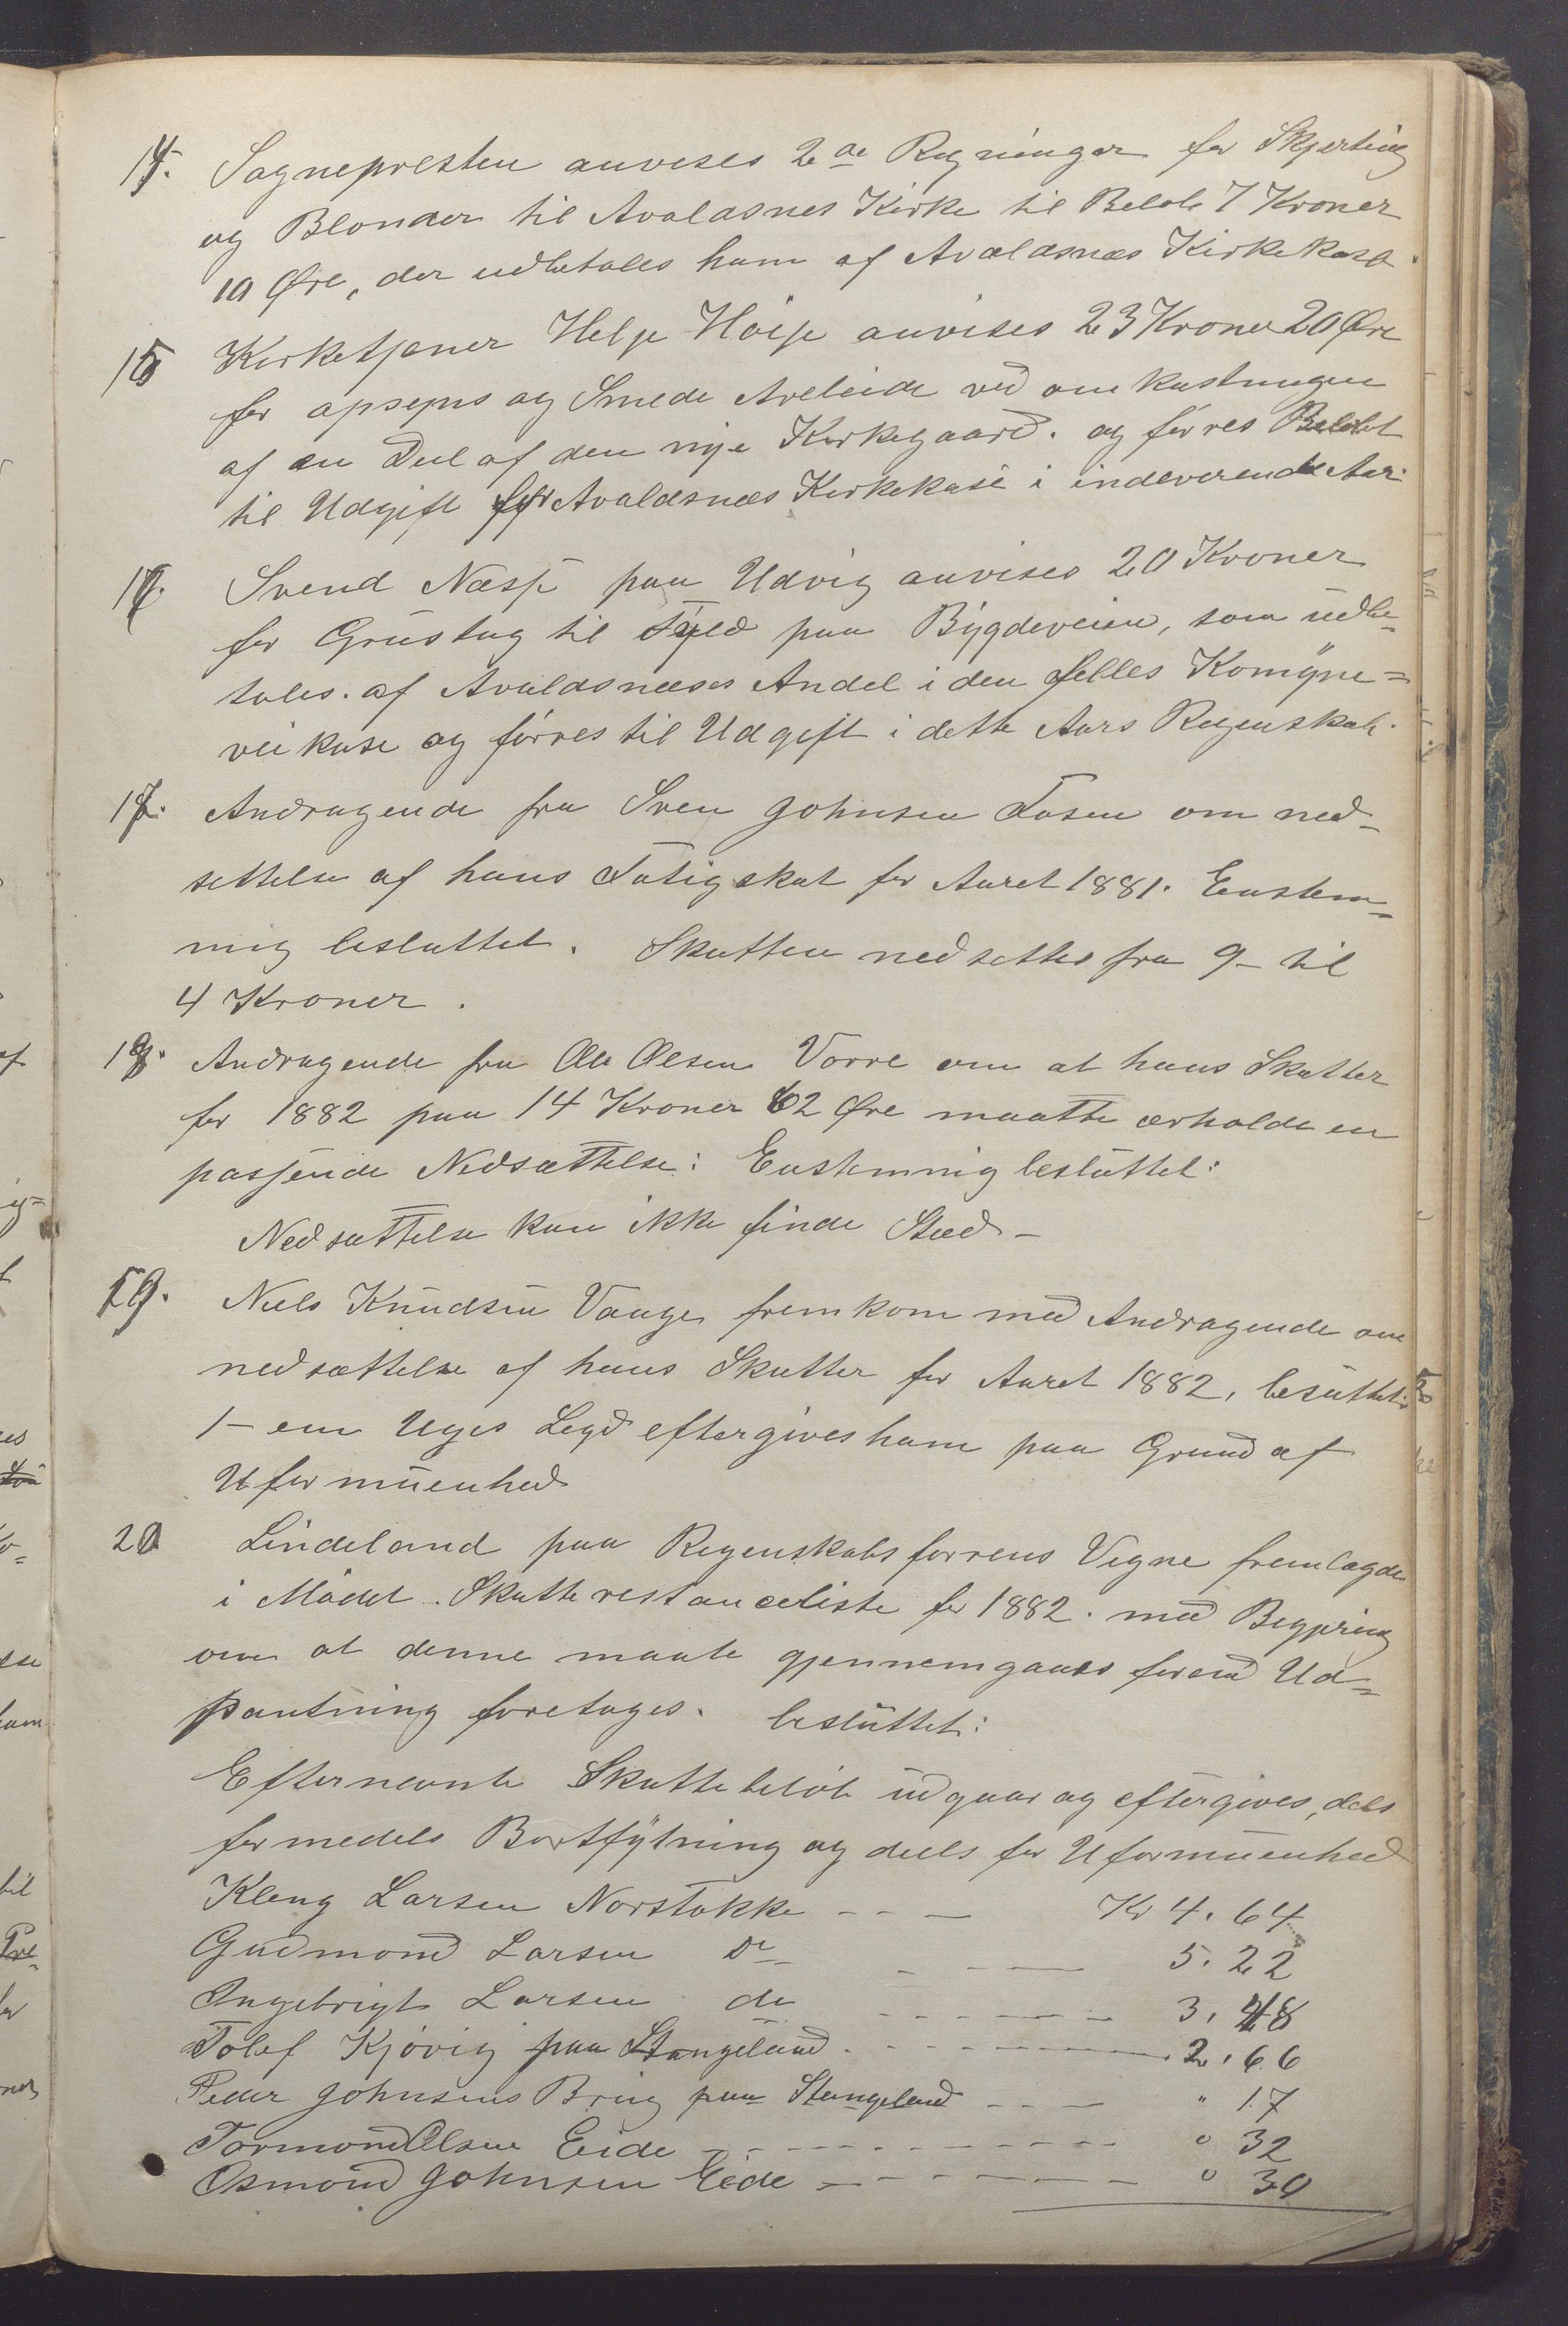 14. Sognepresten anvises 2de Regninger for Skjerting
og Blonder til Avaldsnes Kirke til Beløb 7 Kroner
10 Øre, der udbetales ham af Avaldsnæs Kirkekase.
15 Kirketjener Helje Høije anvises 23 Kroner 20 Øre
for opseyns og Smede Arbeide ved omkastningen
af en Deel af den nye Kirkegaard. og førres Beløbet
til Udgift for Avaldsnæs Kirkekase i indeverende Aar.
16. Svend Næsse paa Udvig anvises 20 Kroner
for Grustag til Fyld paa Bygdeveien, som udbe-
tales. af Avaldsnæses Andel i den felles Komune=
veikase og førres til Udgift i dette Aars Regenskab.
17. Andragende fra Sven Johnsen Fosen om ned-
settelse af hans Fatigskat for Aaret 1881. Eenstem=
mig besluttet. Skatten nedsettes fra 9- til
4 Kroner.
18. Andragende fra Ole Olsen Vorre om at hans Skatter
for 1882 paa 14 Kroner 62 Øre maatte erholde en
passende Nedsættelse: Enstemmig besluttet:
Nedsættelse kan ikke finde Sted-
19. Niels Knudsen Vange fremkom med Andragende om
nedsættelse af hans Skatter for Aaret 1882, besluttet:
1- em Uges Legd eftergives ham paa Grund af
Uformuenhed
20 Lindeland paa Regenskabsførrens Vegne fremlagde
i Mødet Skatterestanceliste for 1882. med Begjering
om at denne maate gjennemgaaes førend Ud=
pantning foretages. besluttet:
Efternevnte Skattebeløb udgaar og eftergives, dels
formedels Bortflytning og deels for Uformuenhed
Kleng Larsen Norstokke --- Kr 4. 64
Gudmond Larsen do --- 5. 22
Ingebrigt Larsen do --- 3. 48
Tolef Kjøvig paa Stangeland --- 2. 66
Peder Johnsens Brug paa Stangeland --- " 17
Tormond Olsen Eide --- " 32
Osmond Johnsen Eide --- " 30